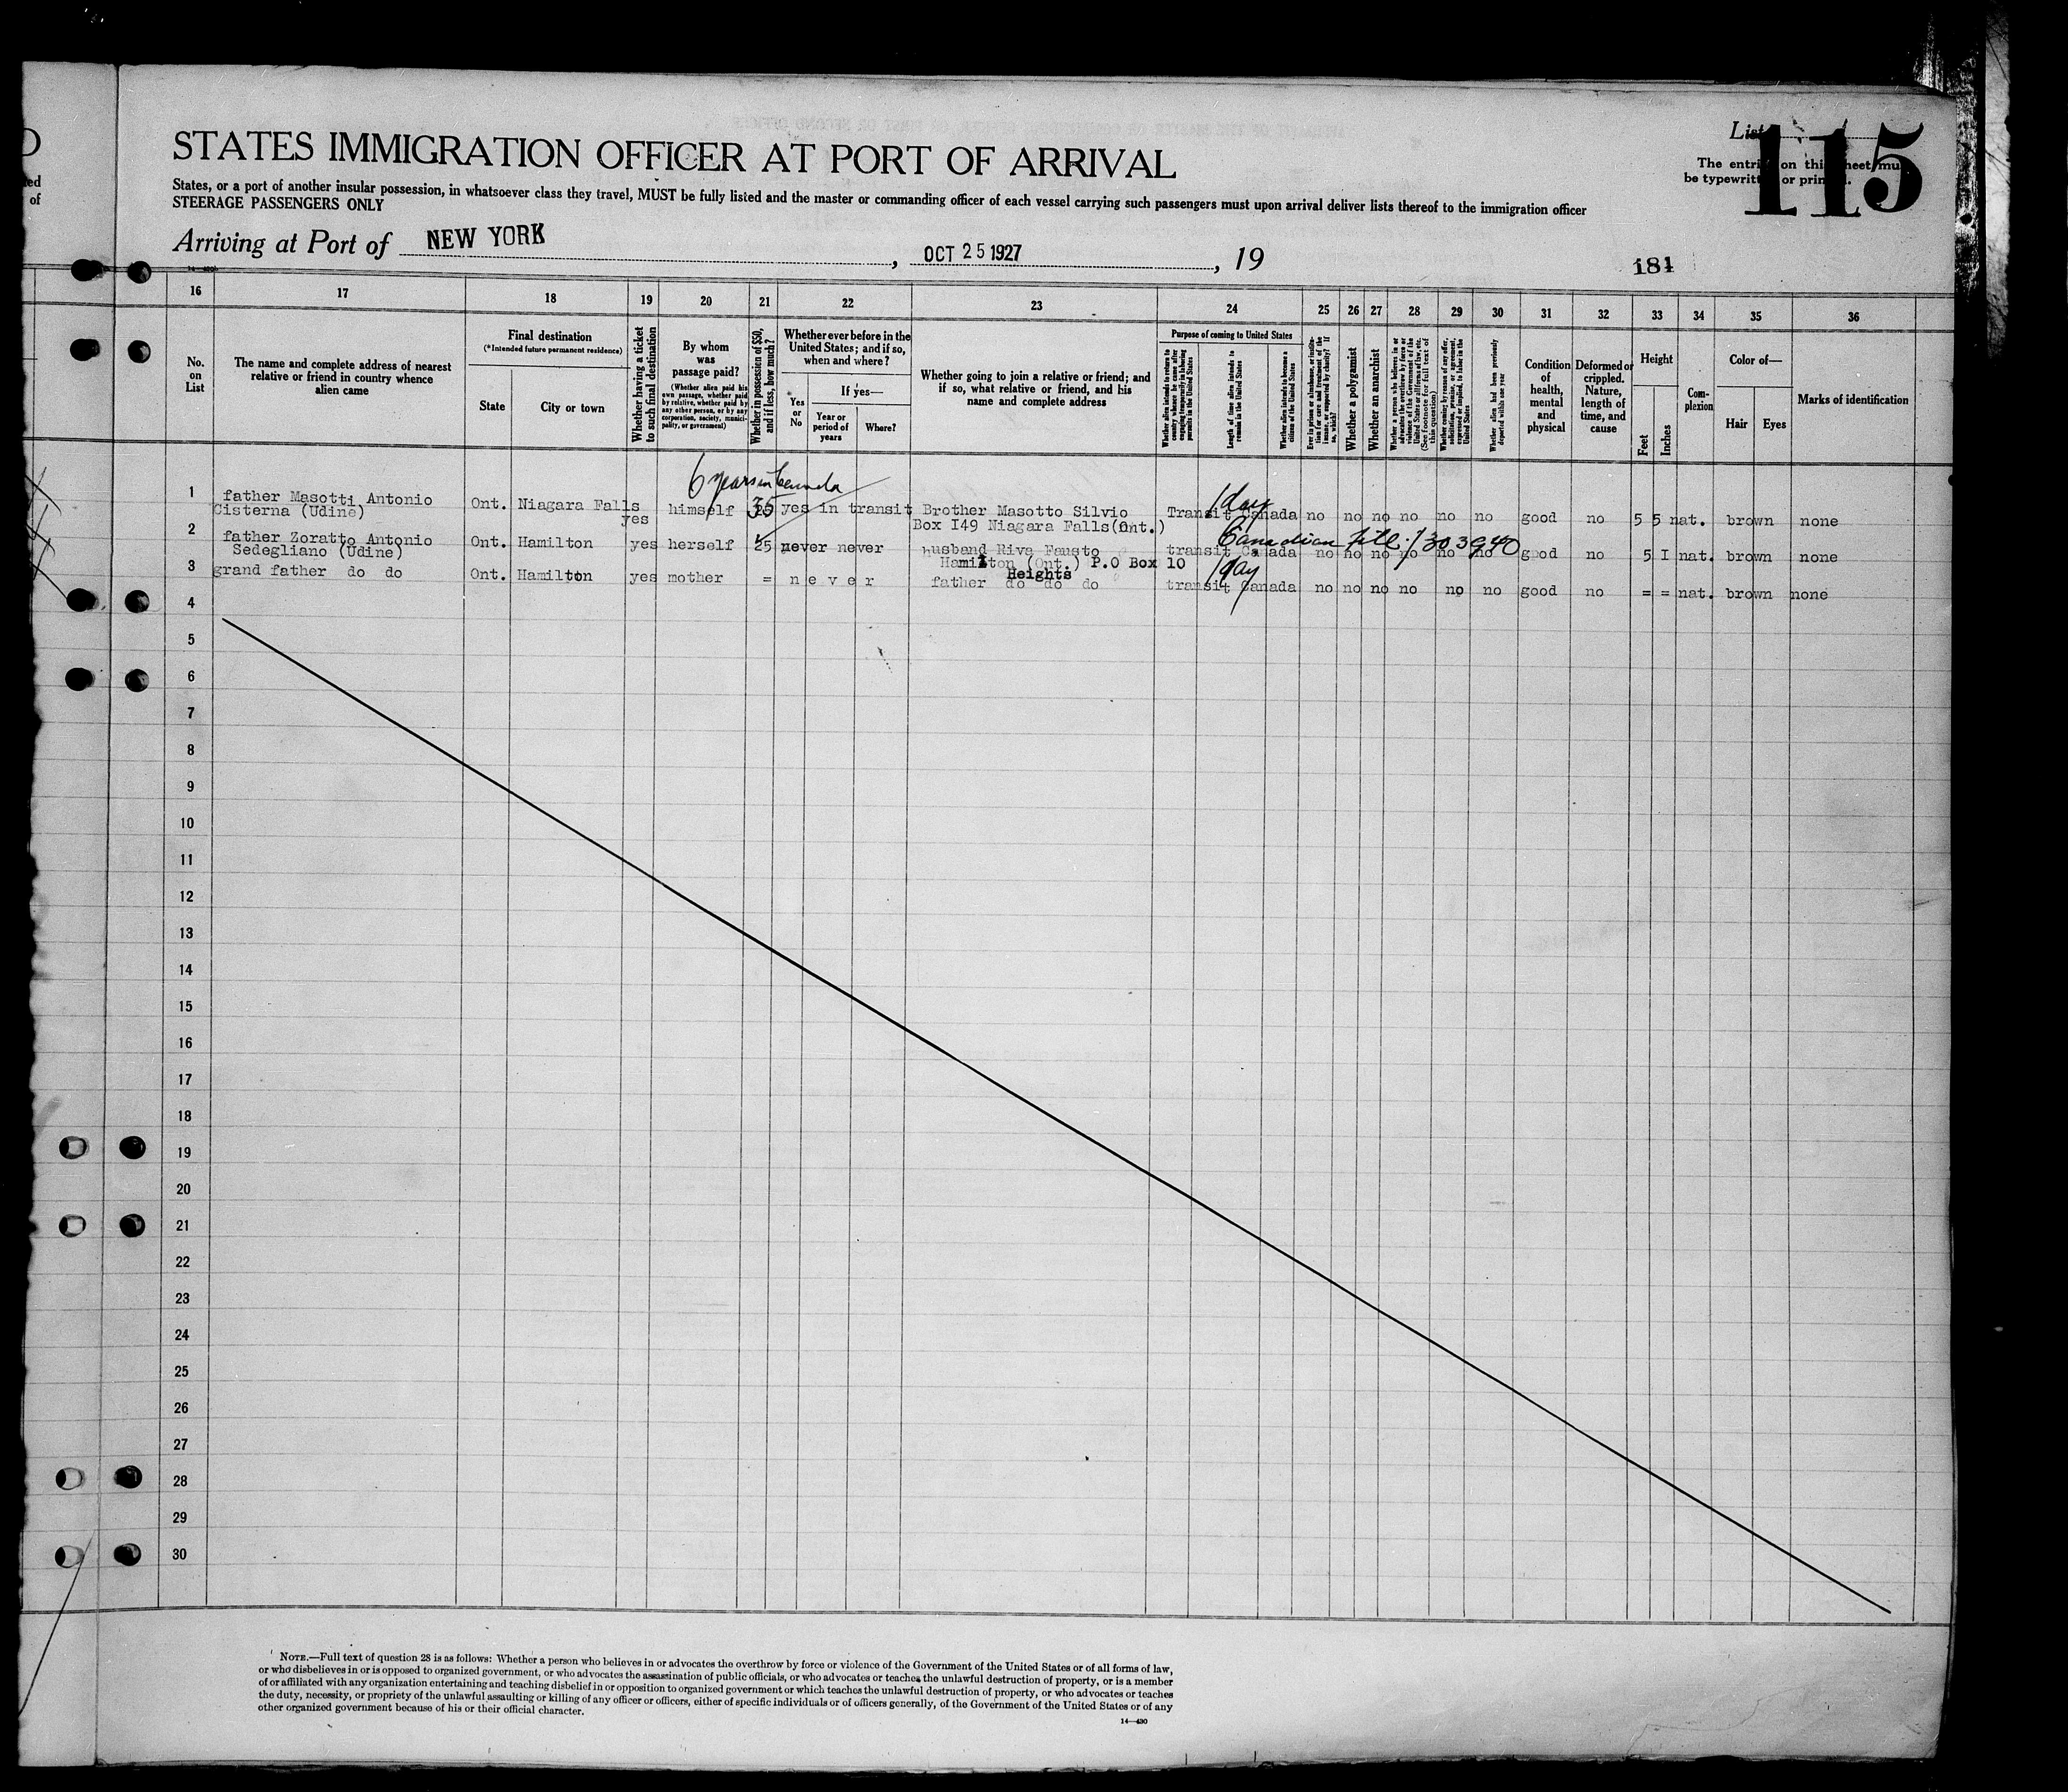 STATES IMMIGRATION OFFICER AT PORT OF ARRIVAL
List
115
The entries on this sheet must
be typewritten or printed.
States, or a port of another insular possession, in whatsoever class they travel, MUST be fully listed and the master or commanding officer of each vessel carrying such passengers must upon arrival deliver lists thereof to the immigration officer
STEERAGE PASSENGERS ONLY
Arriving at Port of NEW YORK, OCT 25 1927, 19
181
16 17 18 19 20 21 22 23 24 25 26 27 28 29 30 31 32 33 34 35 36
No. on List
The name and complete address of nearest relative or friend in country whence alien came
Final destination
(*Intended future permanent residence)
State
City or town
Whether having a ticket to such final destination
By whom was passage paid?
(Whether alien paid his own passage, whether paid by relative, whether paid by any other person, or by any corporation, society, municipality, or government)
Whether in possession of $50, and if less, how much?
Whether ever before in the United States; and if so, when and where?
Yes or No
If yes—
Year or period of years
Where?
Whether going to join a relative or friend; and if so, what relative or friend, and his name and complete address
Purpose of coming to United States
Whether alien intends to return to country whence he came after engaging temporarily in laboring pursuits in the United States
Length of time alien intends to remain in the United States
Whether alien intends to become a citizen of the United States
Ever in prison or almshouse, or institution for care and treatment of the insane, or supported by charity? If so, which?
Whether a polygamist
Whether an anarchist
Whether a person who believes in or advocates the overthrow by force or violence of the Government of the United States or all forms of law, etc. (See footnote for full text of this question)
Whether coming by reason of any offer, solicitation, promise, or agreement, expressed or implied, to labor in the United States
Whether alien had been previously deported within one year
Condition of health, mental and physical
Deformed or crippled. Nature, length of time, and cause
Height
Feet
Inches
Complexion
Color of—
Hair
Eyes
Marks of identification
6 years in Canada
1 father Masotti Antonio
Cisterna (Udine) Ont. Niagara Falls yes himself 35 yes in transit Brother Masotto Silvio
Box I49 Niagara Falls(Ont.) Transit Canada 1 day no no no no no no good no 5 5 nat. brown none
2 father Zoratto Antonio
Sedegliano (Udine) Ont. Hamilton yes herself 25 never never husband Riva Fausto
Hamilton (Ont.) P.O Box 10
Heights
transit Canada Canadian no no no no no no good no 5 I nat. brown none
3 grand father do do Ont. Hamilton yes mother = never father do do do transit Canada 1 day no no no no no no good no = = nat. brown none
4
5
6
7
8
9
10
11
12
13
14
15
16
17
18
19
20
21
22
23
24
25
26
27
28
29
30
NOTE.—Full text of question 28 is as follows: Whether a person who believes in or advocates the overthrow by force or violence of the Government of the United States or of all forms of law,
or who disbelieves in or is opposed to organized government, or who advocates the assassination of public officials, or who advocates or teaches the unlawful destruction of property, or is a member
of or affiliated with any organization entertaining and teaching disbelief in or opposition to organized government or which teaches the unlawful destruction of property, or who advocates or teaches
the duty, necessity, or propriety of the unlawful assaulting or killing of any officer or officers, either of specific individuals or of officers generally, of the Government of the United States or of any
other organized government because of his or their official character.
14—430